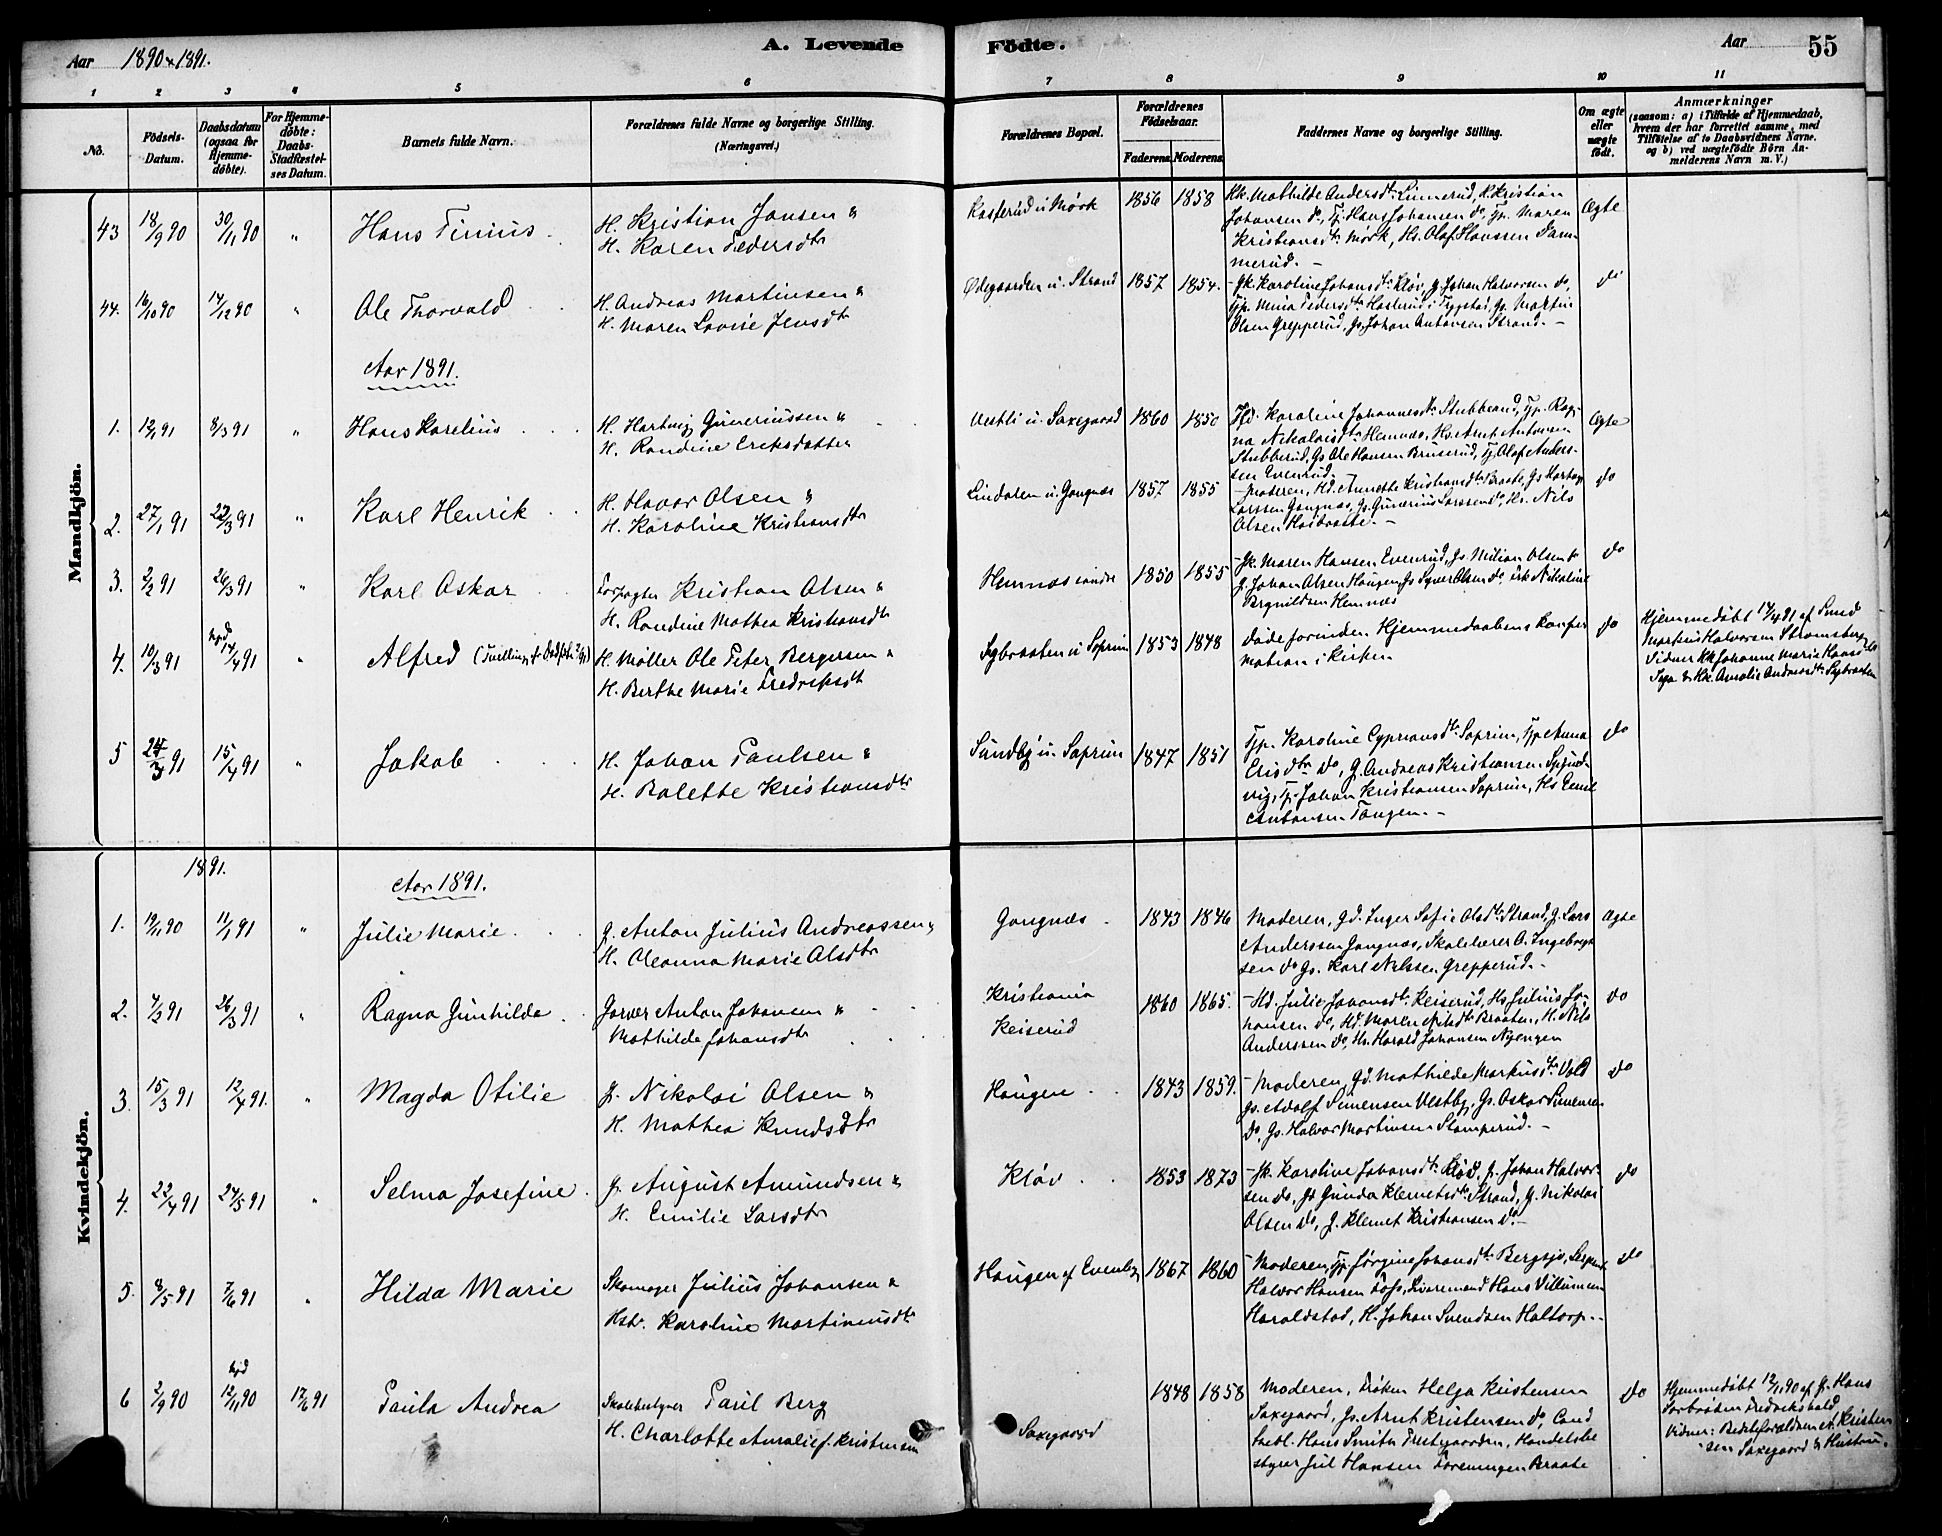 Aar 1890 & 1891.
A. Levende
Födte.
Aar
55
1 2 3 4 5 6 7 8 9 10 11
No.
Födsels-
Datum.
Daabsdatum
(ogsaa for
Hjemme-
döbte).
For Hjemme-
döbte:
Daabs-
Stadfæstel-
ses Datum.
Barnets fulde Navn.
Forældrenes fulde Navne og borgerlige Stilling.
(Næringsvei.)
Forældrenes Bopæl.
Forældrenes
Födselsaar.
Faderens. Moderens.
Faddernes Navne og borgerlige Stilling.
Om ægte
eller
uægte
födt.
Anmærkninger
(saasom: a) i Tilfælde af Hjemmedaab,
hvem der har forrettet samme, med
Tilföielse af to Daabsvidners Navne.
og b) ved uægtefödte Börn An-
melderens Navn m. V.)
Mandkjön.
43 18/9 90 30/11 90 " Hans Tinius
H. Kristian Jansen "
H. Karen Pedersdtr
Kasferud u Mørk 1856 1858
Kk. Mathilde Andersdtr Linnerud, K. Kristian
Johansen do, Tj. Hans Johansen do, Tp. Maren
Kristiansdtr Mørk, Hs. Olaf Hanssen Dam-
merud. -
Ægte
44. 16/10 90 14/12 90 " Ole Thorvald
H. Andreas Martinsen "
H. Maren Lovise Jensdtr
Ødegaarden u. Strand 1857 1854.
- Gk. Karoline Johansdtr Kløv, G. Johan Halvorsen do,
Tp. Mina Pedersdtr Haslerud i Trygstad, Gs. Martin
Olsen Grepperud, Gs. Johan Antonsen Strand. -
do
Aar 1891.
1. 12/1 91 8/3 91 " Hans Karelius
H. Hartvig Guneriussen "
H. Randine Eriksdatter
Vestli u. Saxegaard 1860 1850
Karoline Johannesdtr Stubberud, Tp. Rag-
na Nikolaisdtr Hemnæs, Hs. Arnt Antonsen
Stubberud, Gs. Ole Hansen Bruserud, Tj. Olaf Anders-
sen Evenrud.
Ægte
2. 27/1 91 22/3 91 " Karl Henrik
H. Havor Olsen "
H. Karoline Kristiansdtr
Lindalen u. Gangnæs 1857 1855
- Moderen, Hd. Annette Kristiansdtr Braate, Gs. Hartvig
Larssen Gangnæs, Gs. Gunerius Larssen do, Hs. Nils
Olsen Haibraate. -
do
3. 2/2 91 26/3 91 " Karl Oskar
Forpagter Kristian Olsen "
H. Randine Mathea Kristiansdtr
Hemnæs søndre 1850 1855
- Gk. Maren Hansen Evenrud, Gs. Milian Olsen do
G. Johan Olsen Haugen, Gs. Syver Olsen do, Nikoline
Bergnildsen Hemnæs
do
4. 10/3 91 14/4 91 " Alfred
H. Møller Ole Peter Bergersen "
H. Berthe Marie Fredriksdtr
Sybraaten u Soprim 1853 1848
døde forinden Hjemmedaabens Konfir-
mation i Kirken
do
Hjemmedøbt 14/4 91 af Smed
Martin Halvorsen Strømsberg
Vidner Kk Johanne Marie Hansdtr
& Kk. Amalie Andreasdtr Sybraaten
5 24/3 91 15/4 91 " Jakob
H. Johan Paulsen "
H. Balette Kristiansdtr
Sundby u. Soprim 1847 1851
Tp. Karoline Cypriansdtr Soprim, Tp. Anna
do, G. Andreas Kristiansen
Tj. Johan Kristiansen Soprim, Hs Emil
Antonsen Tangen. -
do
Kvindekjön.
1891.
Aar 1891.
1. 19/11 90 11/1 91 " Julie Marie
G. Anton Julius Andreassen "
H. Oleanna Marie Olsdtr
Gangnæs 1843 1846
Moderen, Gd. Inger Sofie Olsdtr Strand, G. Lars
Anderssen Gangnæs, Skolelærer O. Ingebrigt-
sen do Gs. Karl Nilssen Grepperud. -
Ægte
2. 7/2 91 26/3 91 " Ragna Gunhilda
Garver Anton Johansen "
Mathilde Johansdtr
Kristiania
Keiserud
1860 1865.
- Hd. Julie Johansdtr Keiserud, Hs Julius Jo-
hansen do, Hd. Maren Nilsdtr Braaten, H. Nils
Anderssen do, Hs. Harald Johansen Nyengen
do
3. 15/3 91 12/4 91. " Magda Otilie
G. Nikolai Olsen "
H. Mathea Knudsdtr
Haugen 1843 1859.
- Moderen, Gd. Mathilde Markusdtr Vold
Gs. Adolf Simensen Vestby, Gs. Oskar Simensen
do, Gs. Halvor Martinsen Stamperud. -
do
4. 22/4 91 24/5 91 " Selma Josefine
G. August Amundsen "
H. Emilie Larsdtr
Kløv 1853 1873
- Gk. Karoline Johansdtr Kløv, G. Johan Halvor-
sen do, Gd Gunda Klemetsdtr Strand, G. Nikolai
Olsen do, G. Klemet Kristiansen do. -
do
5. 8/5 91 7/6 91 " Hilda Marie
Skomager Julius Johansen "
Hstr. Karoline Martinusdtr
Haugen af Evenby 1867 1860
- Moderen, Tp. Jørgine Johansdtr Bergsjø, Serpent
Halvor Hansen Foss, Hans Villumsen
Haraldstad, H. Johan Svendsen Haltorp. -
do
6 2/9 90 hjd 12/11 90 17/6 91 Paula Andrea
Skolebestyrer Paul Berg
H. Charlotte Amalie f. Kristensen
Saxegaard
1848 1858
Moderen, Frøken Helga Kristensen
Saxegaard, Gs. Arnt Kristensen do, Cand
Hans Smith Prestegaarden, Handelsbe-
styrer Jul Hansen Foreningen Braate
do
Hjemmedøbt 12/11 90 af Hans
Fredrikshald
Vidner: Bedsteforældrene Kristen-
sen Saxegaard & Hustru.